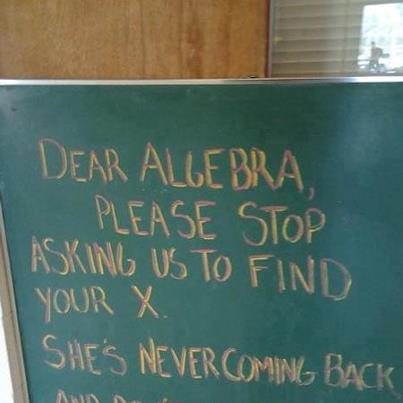 DEAR ALGEBRA,
PLEASE STOP
ASKING US TO FIND
YOUR X.
SHE'S NEVER COMING BACK,
AND